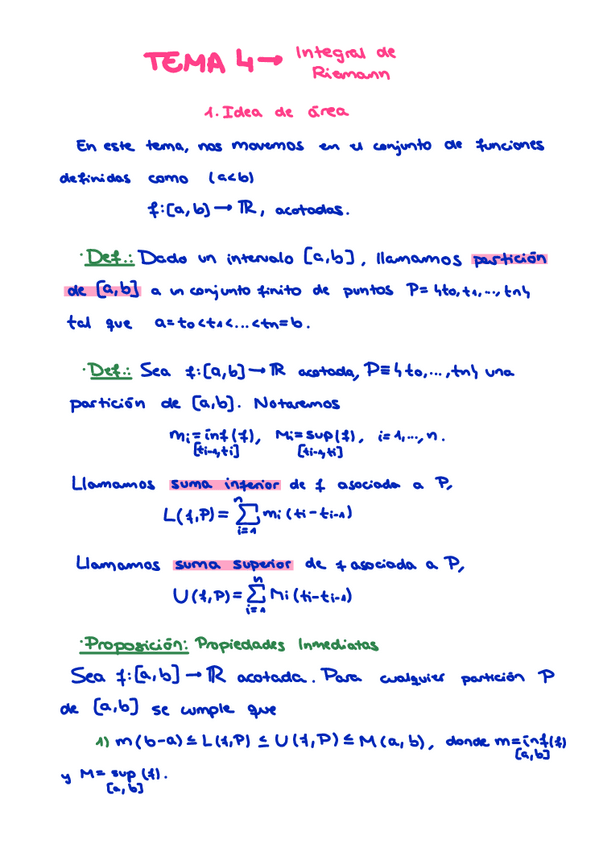 TEMA 4 → Integral de
Riemann
1. Idea de área
En este tema, nos movemos en el conjunto de funciones
definidas como (a<b)
f:[a,b] → ℝ, acotadas.
· Def.: Dado un intervalo [a,b], llamamos partición
de [a,b] a un conjunto finito de puntos P= {t₀,t₁,...,tₙ}
tal que a=t₀<t₁<...<tₙ=b.
· Def.: Sea f:[a,b] → ℝ acotada, P≡{t₀,...,tₙ} una
partición de [a,b]. Notaremos
mᵢ = inf (f), Mᵢ = sup (f), i=1,...,n.
[tᵢ₋₁,tᵢ] [tᵢ₋₁,tᵢ]
Llamamos suma inferior de f asociada a P,
L(f,P) = ∑ᵢ₌₁ⁿ mᵢ (tᵢ-tᵢ₋₁)
Llamamos suma superior de f asociada a P,
U(f,P) = ∑ᵢ₌₁ⁿ Mᵢ (tᵢ-tᵢ₋₁)
· Proposición: Propiedades Inmediatas
Sea f:[a,b] → ℝ acotada. Para cualquier partición P
de [a,b] se cumple que
1) m(b-a) ≤ L(f,P) ≤ U(f,P) ≤ M(a,b), donde m=inf(f)
[a,b]
y M= sup (f).
[a,b]